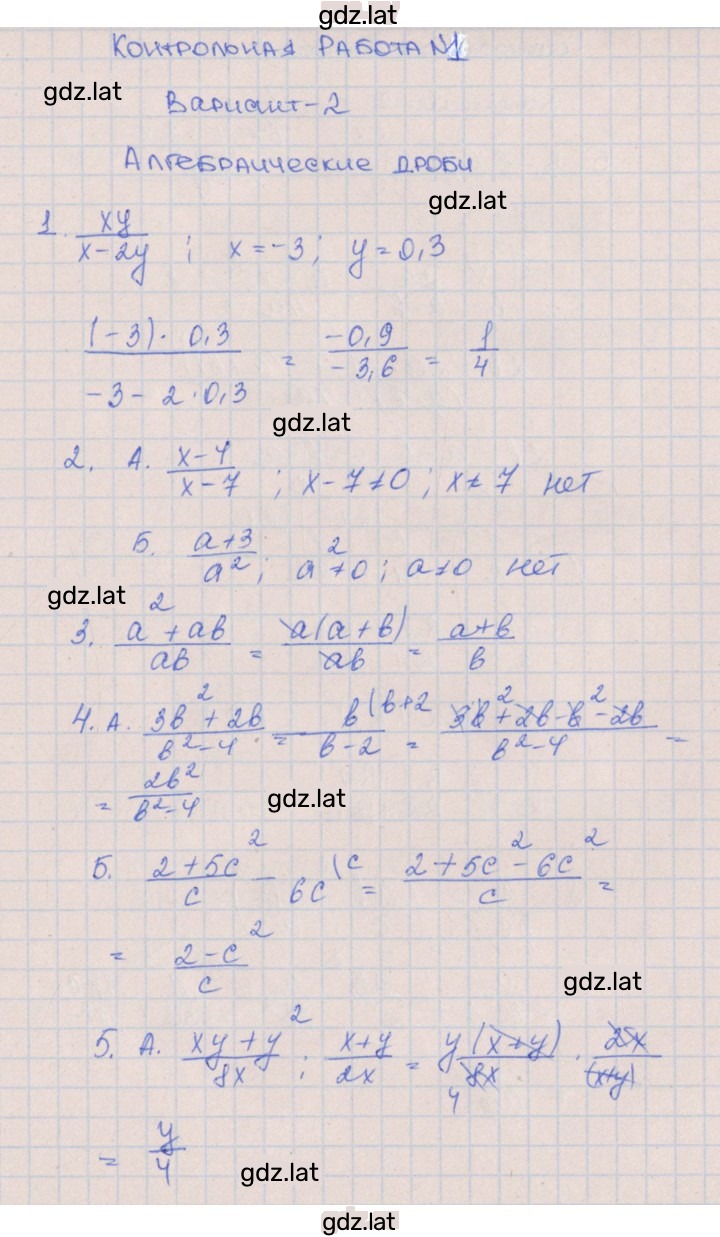 gdz.lat
Контрольная работа №1
gdz.lat
Вариант-2
Алгебраические дроби
gdz.lat
1. xy/(x-2y) ; x=-3; y=0,3
((-3)·0,3)/(-3-2·0,3) = (-0,9)/(-3,6) = 1/4
gdz.lat
2. А. (x-4)/(x-7) ; x-7≠0; x≠7 нет
Б. (a+3)/a² ; a²≠0; a≠0 нет
gdz.lat
3. (a²+ab)/ab = a(a+b)/ab = (a+b)/b
4. А. (3b²+2b)/(b²-4) - b/(b-2) (b+2 = (3b²+2b-b²-2b)/(b²-4) =
= 2b²/(b²-4)
gdz.lat
Б. (2+5c²)/c - 6c \c = (2+5c²-6c²)/c =
= (2-c²)/c
gdz.lat
5. А. (xy+y²)/8x : (x+y)/2x = y(x+y)/8x · 2x/(x+y)
4
= y/4
gdz.lat
gdz.lat